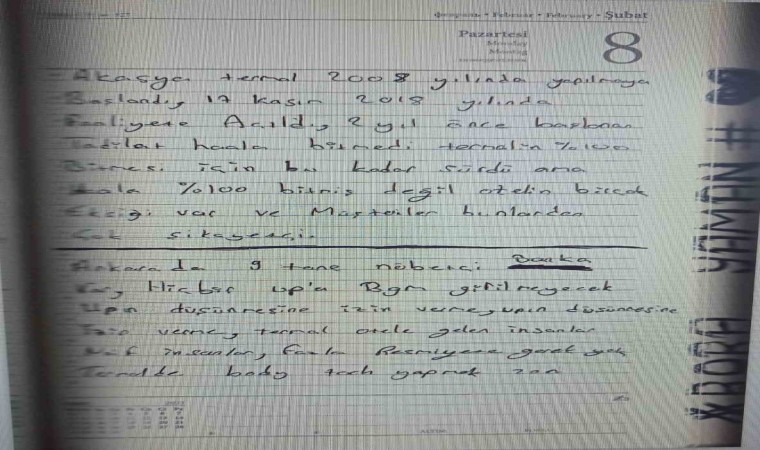 Şubat
Pazartesi
8
Akasya termal 2008 yılında yapılmaya
Başlandı, 17 kasım 2018 yılında
Faaliyete Açıldı, 2 yıl önce başlanan
Tadilat haala bitmedi termalin %100
Bitmesi için bu kadar sürdü ama
Hala %100 bitmiş değil otelin birçok
Eksiği var ve Müşteriler bunlardan
Çok şikayetçi.
Ankarada 9 tane nöbetçi Banka
Var, Hiçbir up'a Bgm girilmeyecek
Upin düşünmesine izin verme, upin düşünmesine
İzin verme, termal otele gelen insanlar
insanlar, fazla Resmiyete gerek yok
body tech yapmak
XBORA YAMAN #